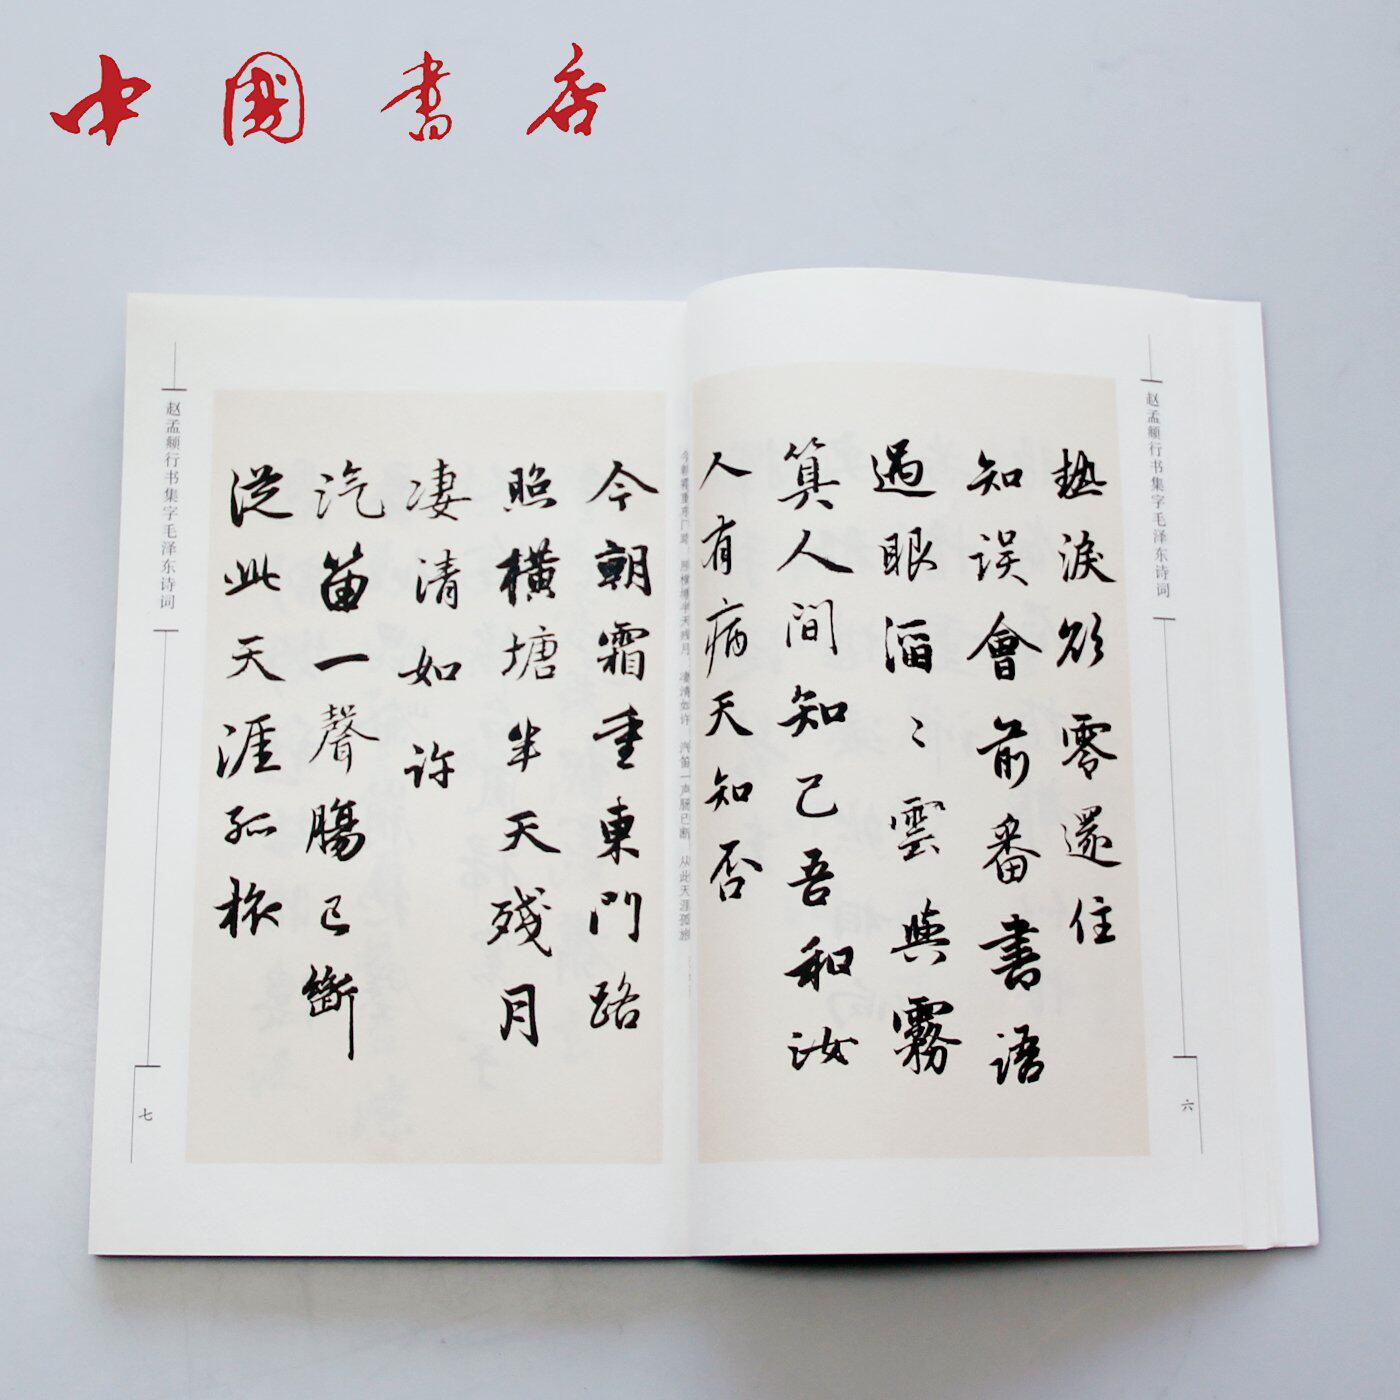 中國書店
赵孟頫行书集字毛泽东诗词
六
熱淚欲零還住
知誤會前番書語
過眼滔〻雲與霧
算人間知己吾和汝
人有病天知否
今朝霜重东门路，照横塘半天残月，凄清如许。汽笛一声肠已断，从此天涯孤旅。
今朝霜重東門路
照橫塘半天殘月
凄清如許
汽笛一聲腸已斷
從此天涯孤旅
赵孟頫行书集字毛泽东诗词
七